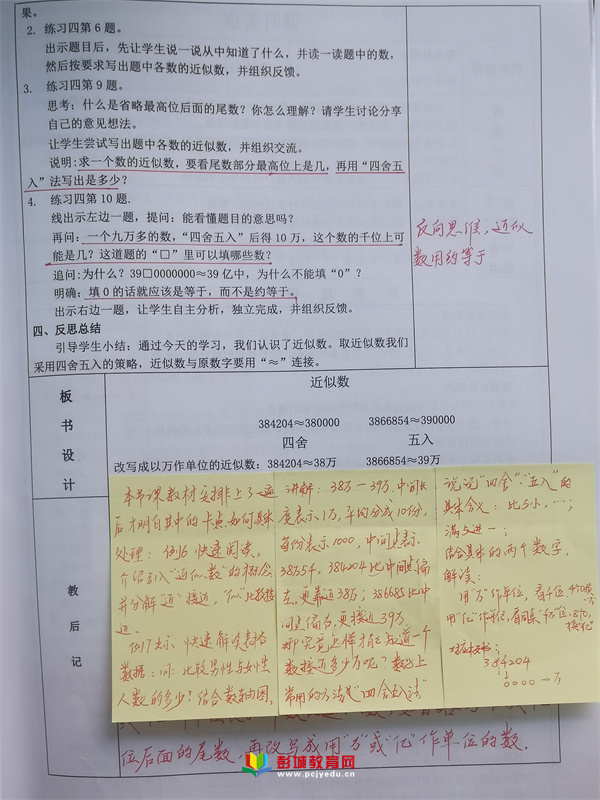 果。
2. 练习四第6题。
出示题目后，先让学生说一说从中知道了什么，并读一读题中的数，
然后按要求写出题中各数的近似数，并组织反馈。
3. 练习四第9题。
思考：什么是省略最高位后面的尾数？你怎么理解？请学生讨论分享
自己的意见想法。
让学生尝试写出题中各数的近似数，并组织交流。
说明：求一个数的近似数，要看尾数部分最高位上是几，再用“四舍五
入”法写出是多少？
4. 练习四第10题.
线出示左边一题，提问：能看懂题目的意思吗？
再问：一个九万多的数，“四舍五入”后得10万，这个数的千位上可
能是几？这道题的“□”里可以填哪些数？
追问：为什么？39□0000000≈39亿中，为什么不能填“0”？
明确：填0的话就应该是等于，而不是约等于。
出示右边一题，让学生自主分析，独立完成，并组织反馈。
反向思维，近似
数用约等于
四、反思总结
引导学生小结：通过今天的学习，我们认识了近似数。取近似数我们
采用四舍五入的策略，近似数与原数字要用“≈”连接。
板书设计
近似数
384204≈380000 3866854≈390000
四舍 五入
改写成以万作单位的近似数：384204≈38万 3866854≈39万
教后记
本节课教材安排上了一遍
后才明白其中的卡点如何具体
处理：例6 快速阅读，
介绍引入“近似数”的概念
并分解“近”接近，“似”比较接
近。
例7出示 快速解决表格
数据：问：比较男性与女性
人数的多少？结合数轴图，
讲解：38万—39万，中间长
度表示1万，平均分成10份，
每份表示1000，中间点表示
38万5千，384204比中间点偏
左，更靠近38万；386685比中
间点偏右，更接近39万。
那究竟怎样才能知道一个
数接近多少万呢？数学上
常用的方法是“四舍五入法”
说说“四舍”“五入”的
具体含义：比5小，…；
满5进一；
结合具体的两个数字，
解读：
用“万”作单位，看千位，
用“亿”作单位，看
384204
0000 万
位后面的尾数，再改写成用“万”或“亿”作单位的数.
彭城教育网
www.pcjyedu.cn